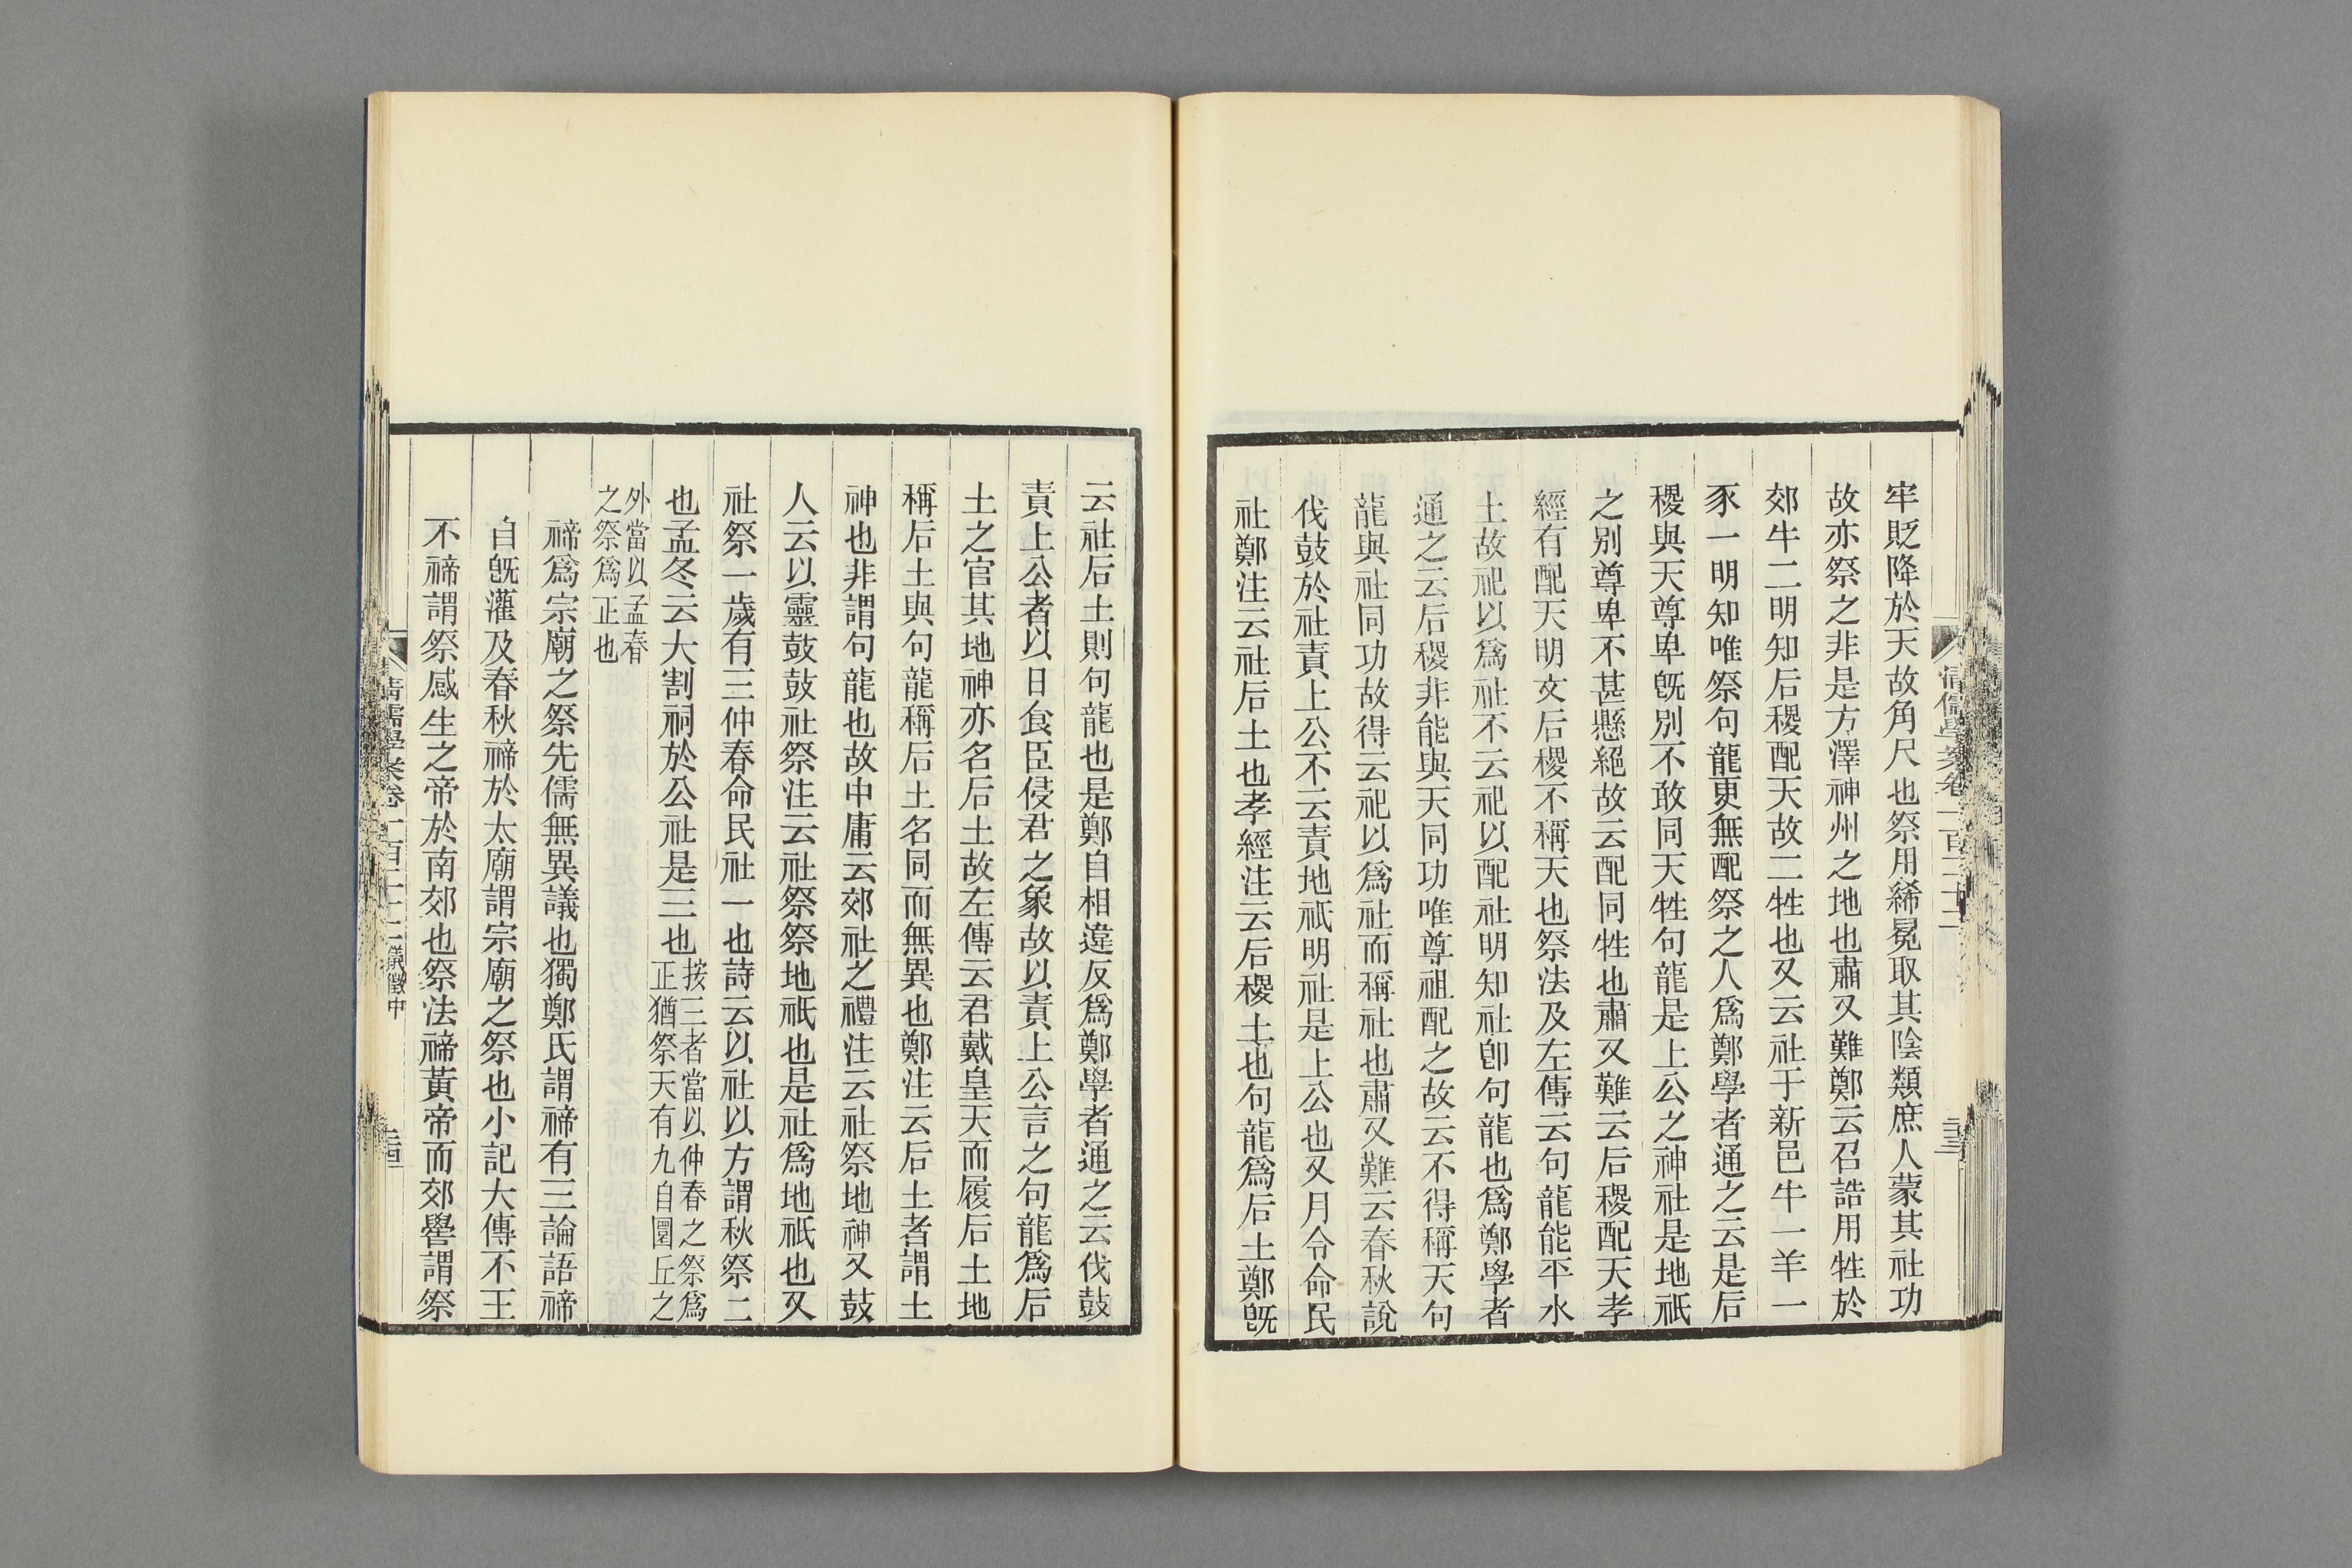 牢貶降於天故角尺也祭用絺冕取其陰類庶人蒙其社功
故亦祭之非是方澤神州之地也肅又難鄭云召誥用牲於
郊牛二明知后稷配天故二牲也又云社于新邑牛一羊一
豕一明知唯祭句龍更無配祭之人爲鄭學者通之云是后
稷與天尊卑旣別不敢同天牲句龍是上公之神社是地祇
之別尊卑不甚懸絕故云配同牲也肅又難云后稷配天孝
經有配天明文后稷不稱天也祭法及左傳云句龍能平水
土故祀以爲社不云祀以配社明知社卽句龍也爲鄭學者
通之云后稷非能與天同功唯尊祖配之故云不得稱天句
龍與社同功故得云祀以爲社而稱社也肅又難云春秋說
伐鼓於社責上公不云責地祇明社是上公也又月令命民
社鄭注云社后土也孝經注云后稷土也句龍爲后土鄭旣
云社后土則句龍也是鄭自相違反爲鄭學者通之云伐鼓
責上公者以日食臣侵君之象故以責上公言之句龍爲后
土之官其地神亦名后土故左傳云君戴皇天而履后土地
稱后土與句龍稱后土名同而無異也鄭注云后土者謂土
神也非謂句龍也故中庸云郊社之禮注云社祭地神又鼓
人云以靈鼓鼓社祭注云社祭祭地祇也是社爲地祇也又
社祭一歲有三仲春命民社一也詩云以社以方謂秋祭二
也孟冬云大割祠於公社是三也按三者當以仲春之祭爲正猶祭天有九自圜丘之
外當以孟春之祭爲正也
禘爲宗廟之祭先儒無異議也獨鄭氏謂禘有三論語禘
自旣灌及春秋禘於太廟謂宗廟之祭也小記大傳不王
不禘謂祭感生之帝於南郊也祭法禘黃帝而郊嚳謂祭